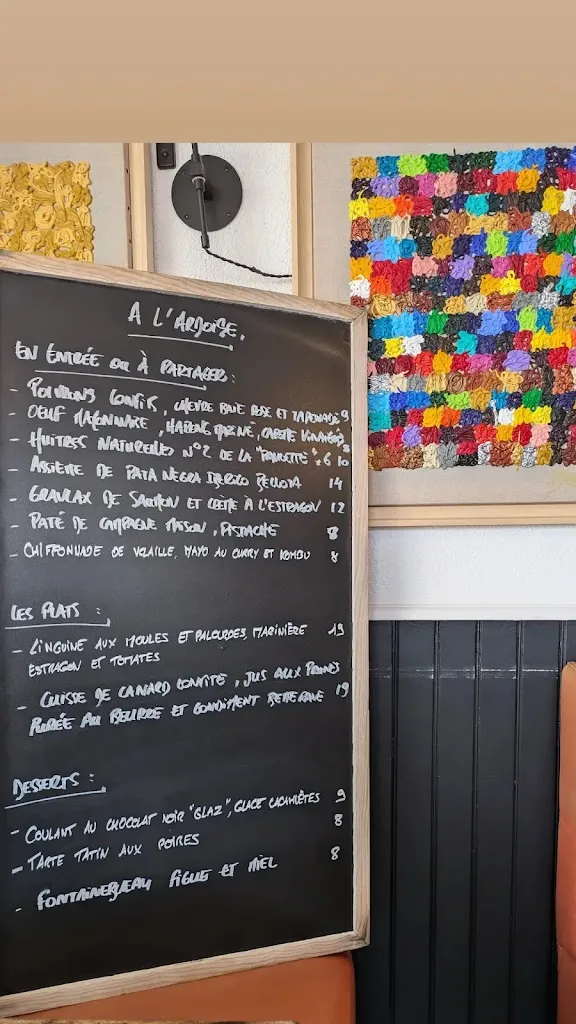 A L'ARDOISE.
EN ENTRÉE OU À PARTAGER :
- POIVRONS CONFIS, CHEVRE FRAIS ET TAPENADE 9
- OEUF MAYONNAISE, HARENG FUMÉ, 8
- HUITRES NATURELLES N°2 DE LA x6 10
- ASSIETTE DE PATA NEGRA IBERICO BELLOTA 14
- GRAVLAX DE SAUMON ET CRÈME À L'ESTRAGON 12
- PATÉ DE CAMPAGNE MAISON, PISTACHE 8
- CHIFFONNADE DE VOLAILLE, MAYO AU CURRY ET KOMBU 8
LES PLATS :
- LINGUINE AUX MOULES ET PALOURDES, MARINIÈRE 19
ESTRAGON ET TOMATES
- CUISSE DE CANARD CONFITE, JUS AUX PRUNES
PURÉE AU BEURRE ET CONDIMENT BETTERAVE 19
DESSERTS :
- COULANT AU CHOCOLAT NOIR "GLAZ", GLACE CACAHUÈTES 9
- TARTE TATIN AUX POIRES 8
- FONTAINEBLEAU FIGUE ET MIEL 8